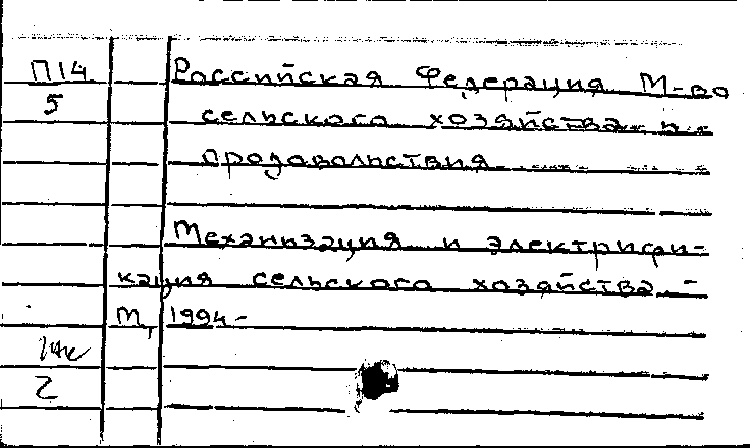 П14. Российская Федерация М-во
5 сельского хозяйства и
продовольствия
Механизация и электрифи-
кация сельского хозяйства -
М, 1994-
2